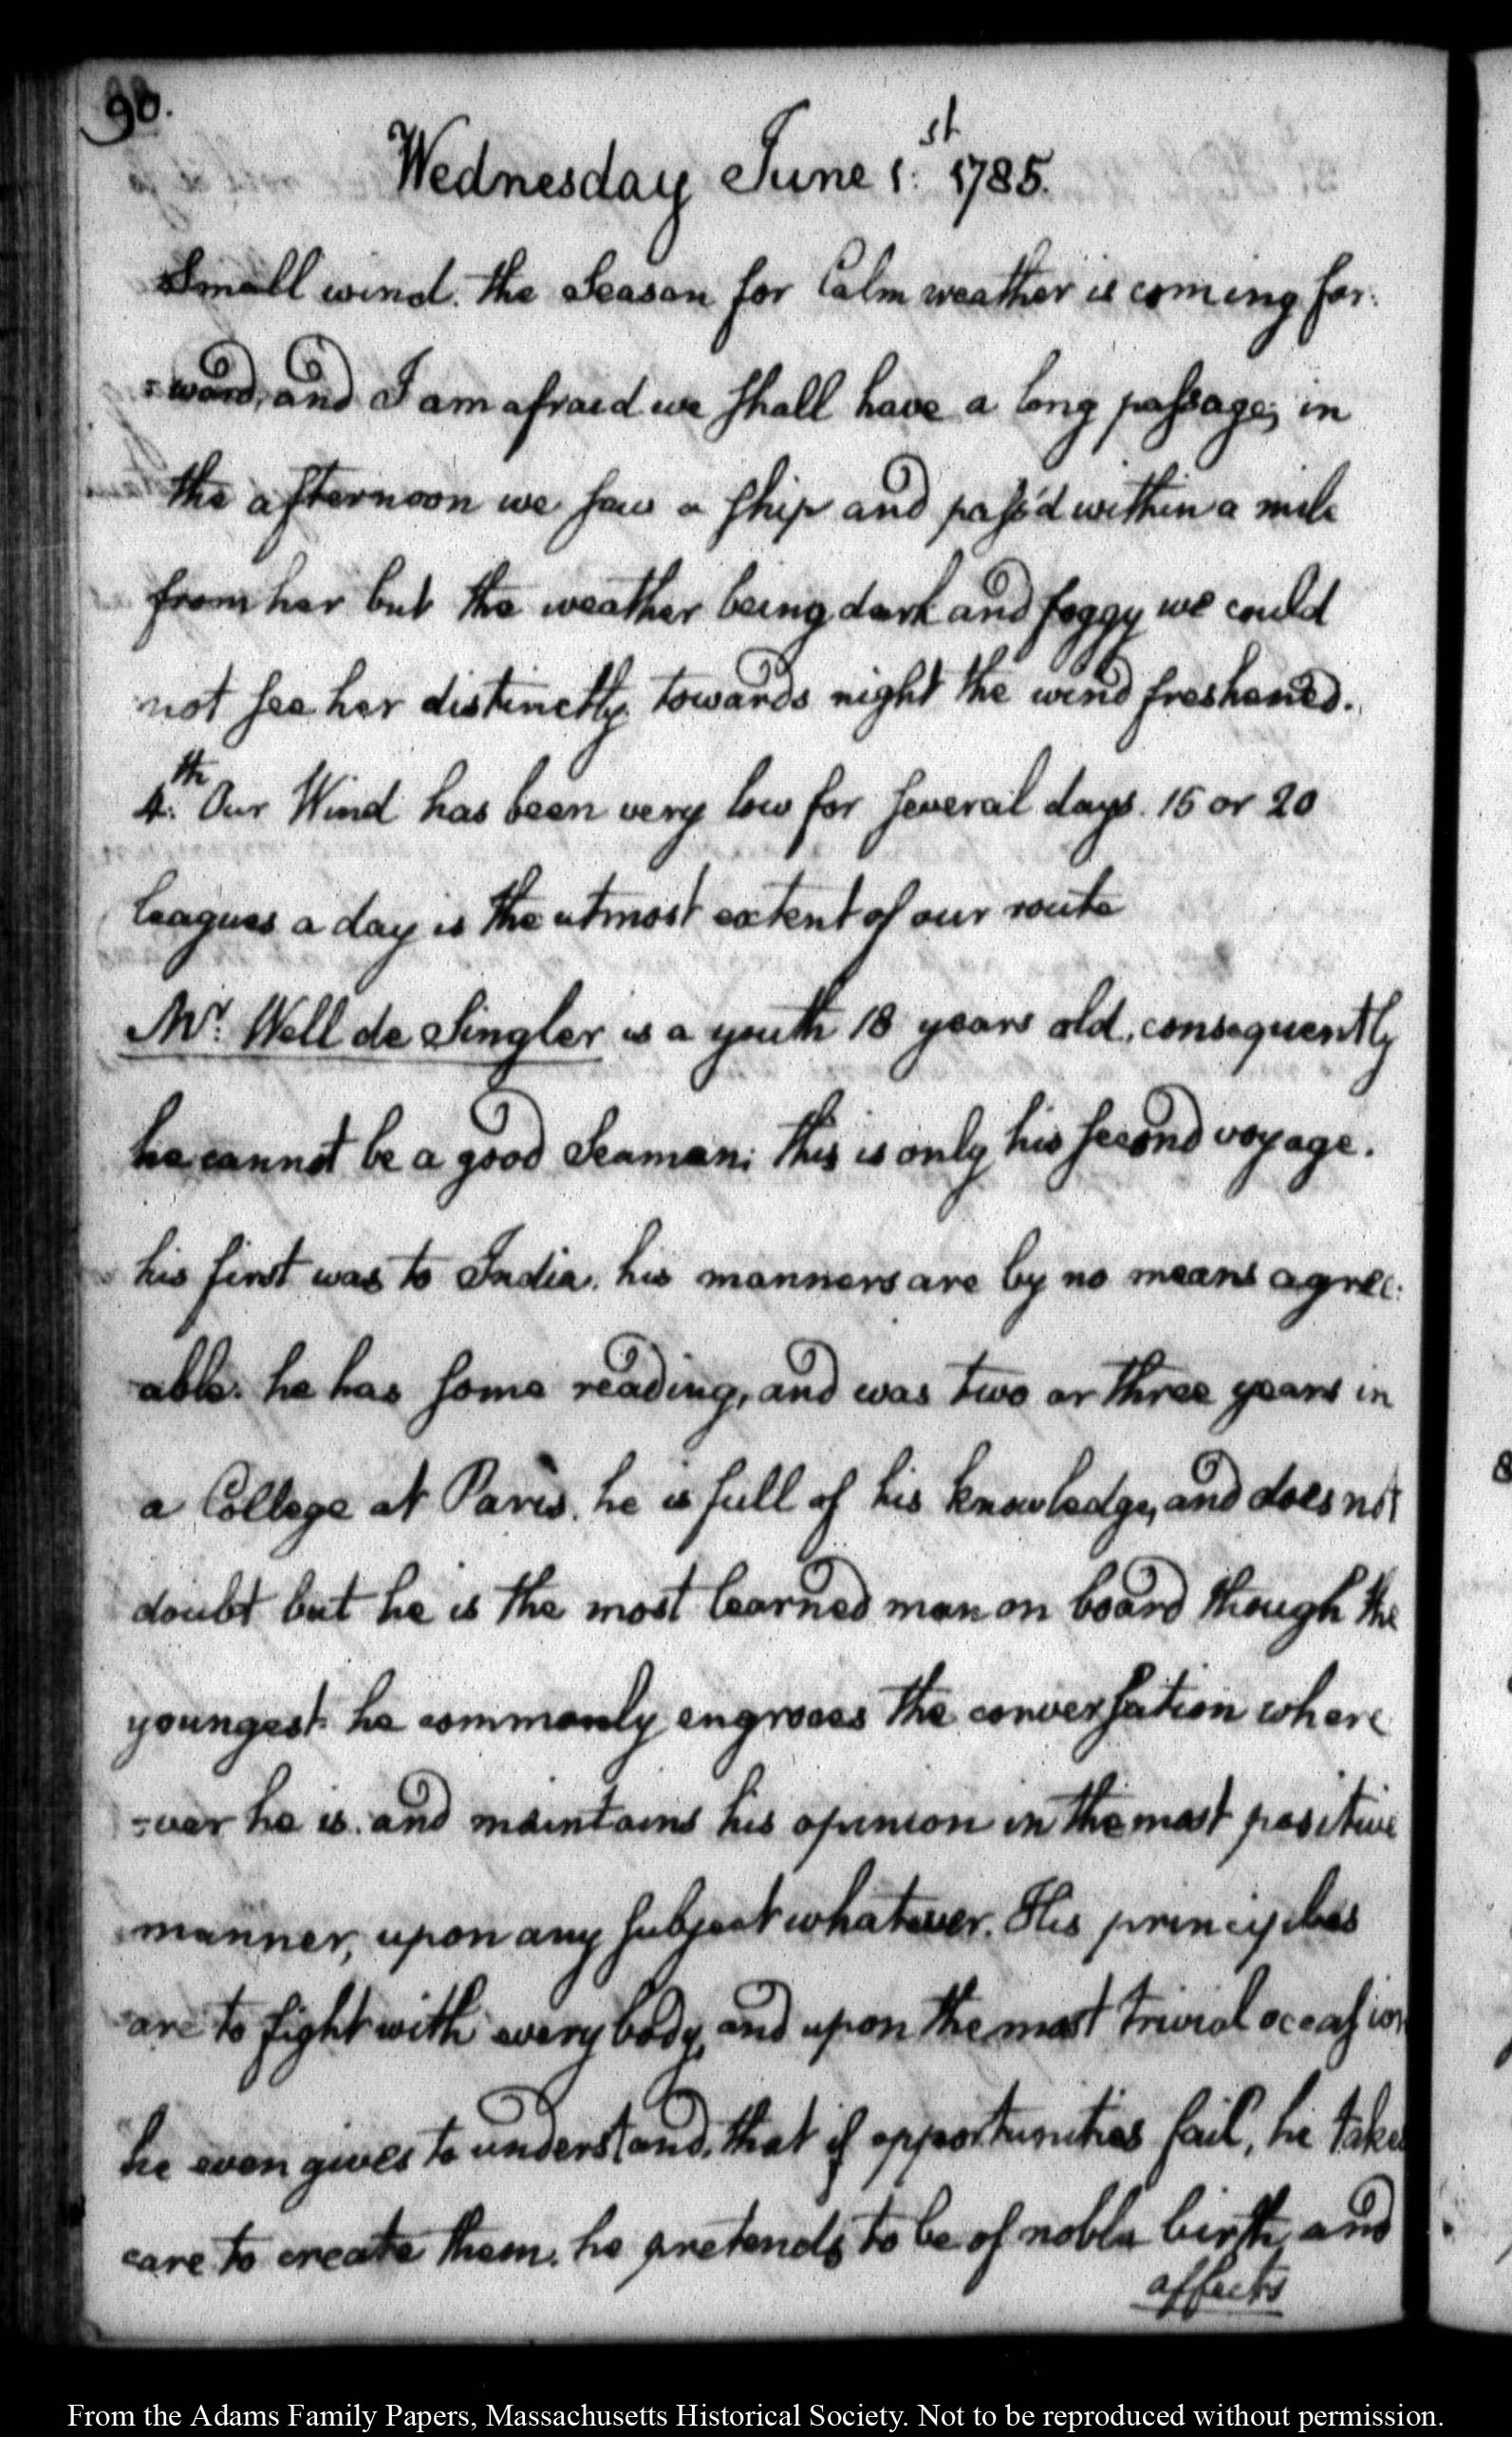 90.
Wednesday June 1:st 1785.
Small wind. the Season for Calm weather is coming for:
=ward, and I am afraid we shall have a long passage; in
the afternoon we saw a ship and pass'd within a mile
from her but the weather being dark and foggy we could
not see her distinctly. towards night the wind freshened.
4:th Our Wind has been very low for several days. 15 or 20
leagues a day is the utmost extent of our route
Mr. Well de Singler is a youth 18 years old, consequently
he cannot be a good Seaman; this is only his second voyage.
his first was to India. his manners are by no means agree:
able. he has some reading, and was two or three years in
a College at Paris. he is full of his knowledge, and does not
doubt but he is the most learned man on board though the
youngest. he commonly engroces the conversation where
=ver he is. and maintains his opinion in the most positive
manner, upon any subject whatever. His principles
are to fight with every body, and upon the most trivial occasion
he even gives to understand, that if opportunities fail, he takes
care to create them. he pretends to be of noble birth, and
affects
From the Adams Family Papers, Massachusetts Historical Society. Not to be reproduced without permission.